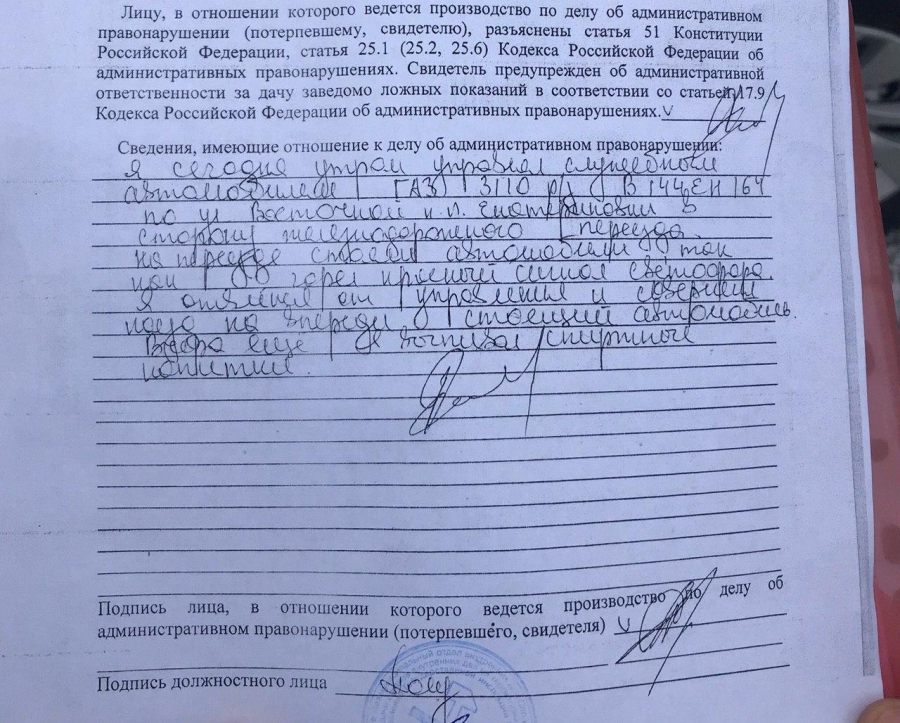 Лицу, в отношении которого ведется производство по делу об административном
правонарушении (потерпевшему, свидетелю), разъяснены статья 51 Конституции
Российской Федерации, статья 25.1 (25.2, 25.6) Кодекса Российской Федерации об
административных правонарушениях. Свидетель предупрежден об административной
ответственности за дачу заведомо ложных показаний в соответствии со статьей 17.9
Кодекса Российской Федерации об административных правонарушениях.
Сведения, имеющие отношение к делу об административном правонарушении:
Я сегодня утром управлял служебным
автомобилем ГАЗ 3110 В 144 ЕН 164
по ул Восточной р.п. Екатериновки в
сторону железнодорожного переезда.
на переезде стояли автомобили, так
как горел красный сигнал светофора.
Я отвлекся от управления и совершил
наезд на впереди стоящий автомобиль.
Вчера еще я выпивал спиртные
напитки.
Подпись лица, в отношении которого ведется производство по делу об
административном правонарушении (потерпевшего, свидетеля)
Подпись должностного лица